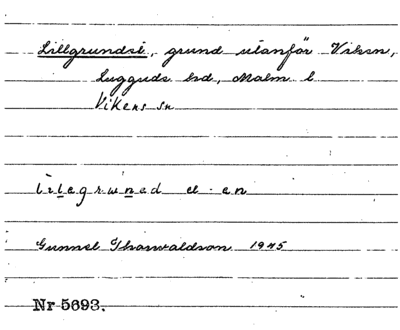 Lillgrundet, grund utanför Viken,
Luggude hd, Malm l
Vikens sn
lılegrwned el -en
Gunnel Thorvaldson 1945
Nr 5693.